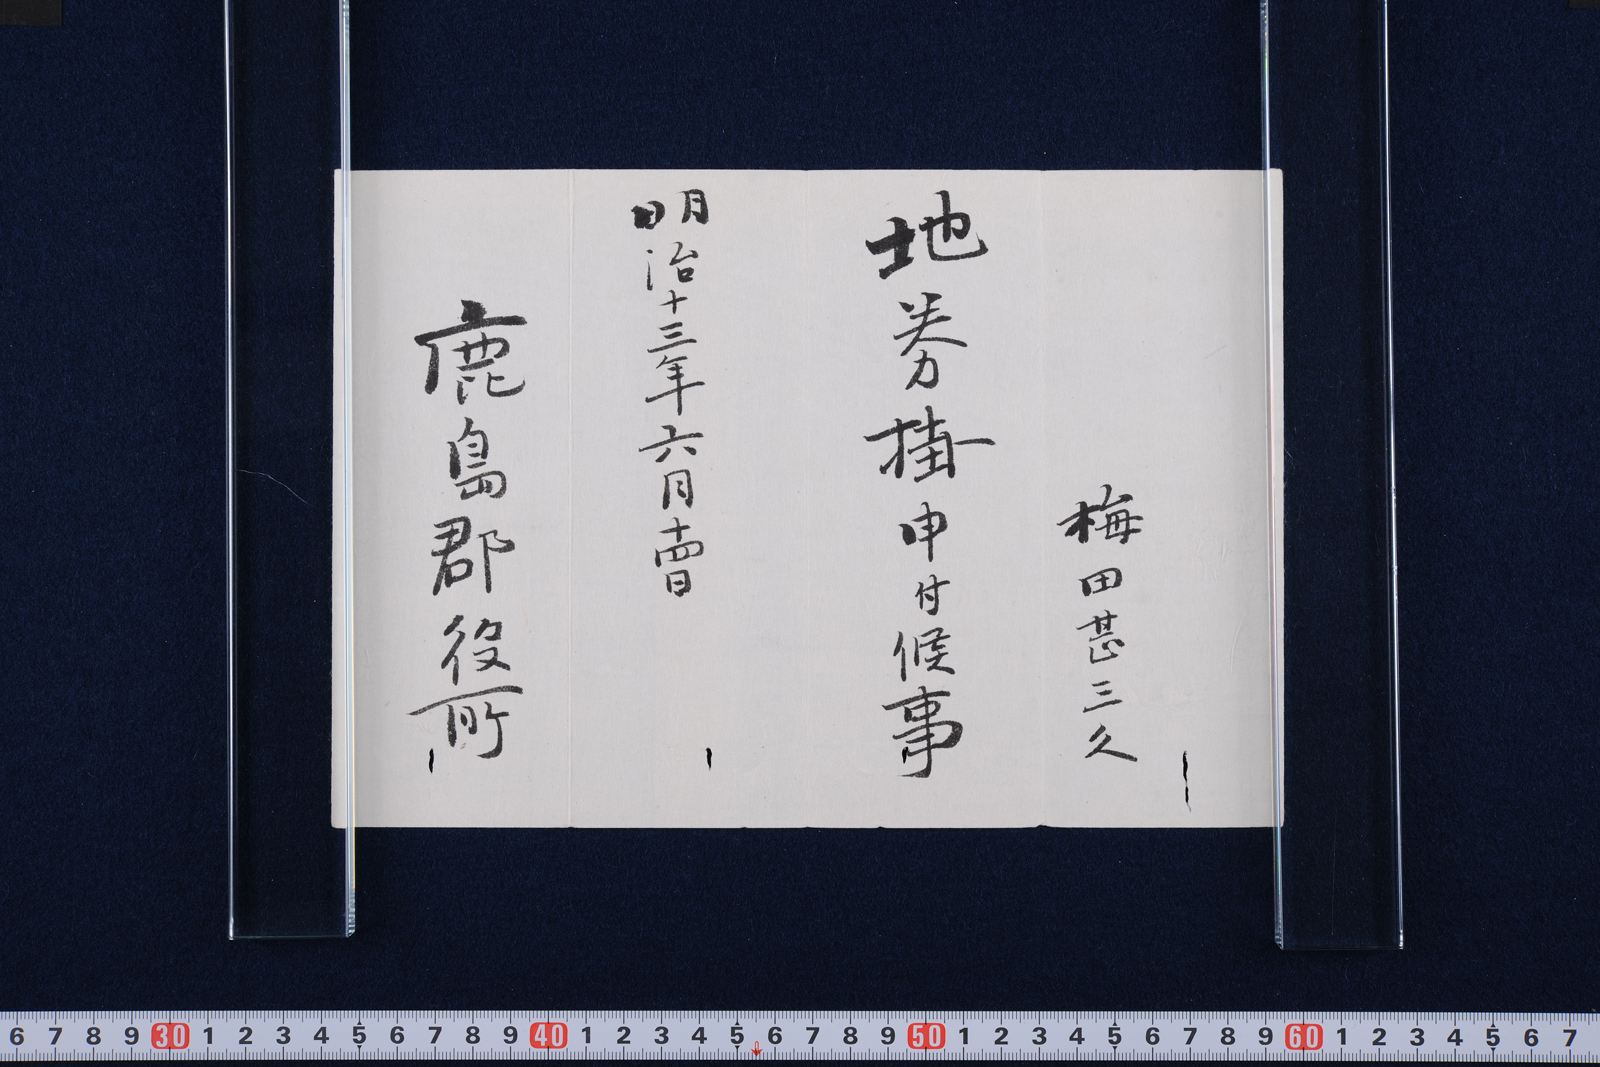 梅田甚三久
地券掛申付候事
明治十三年六月十四日
鹿島郡役所
6 7 8 9 30 1 2 3 4 5 6 7 8 9 40 1 2 3 4 5 6 7 8 9 50 1 2 3 4 5 6 7 8 9 60 1 2 3 4 5 6 7